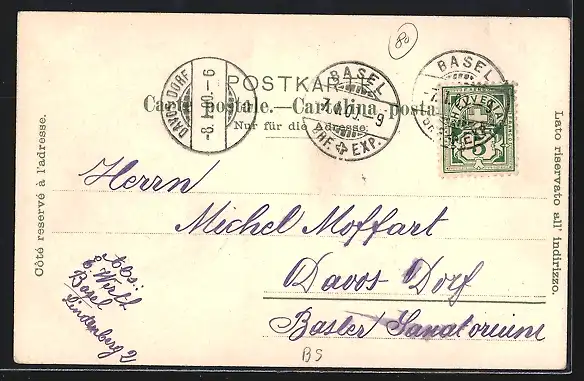 80
POSTKARTE
Carte postale. — Cartolina postale
Nur für die Adresse.
DAVOS DORF
-8.I.00.-6
BASEL
7.I.00. 9
BRF. EXP.
BASEL
HELVETIA
5
Côté reservé à l'adresse.
Lato riservato all' indirizzo.
Herrn
Michel Moffart
Davos-Dorf
Basler Sanatorium
Abs:
E.
Basel
Lindenberg 2
BS